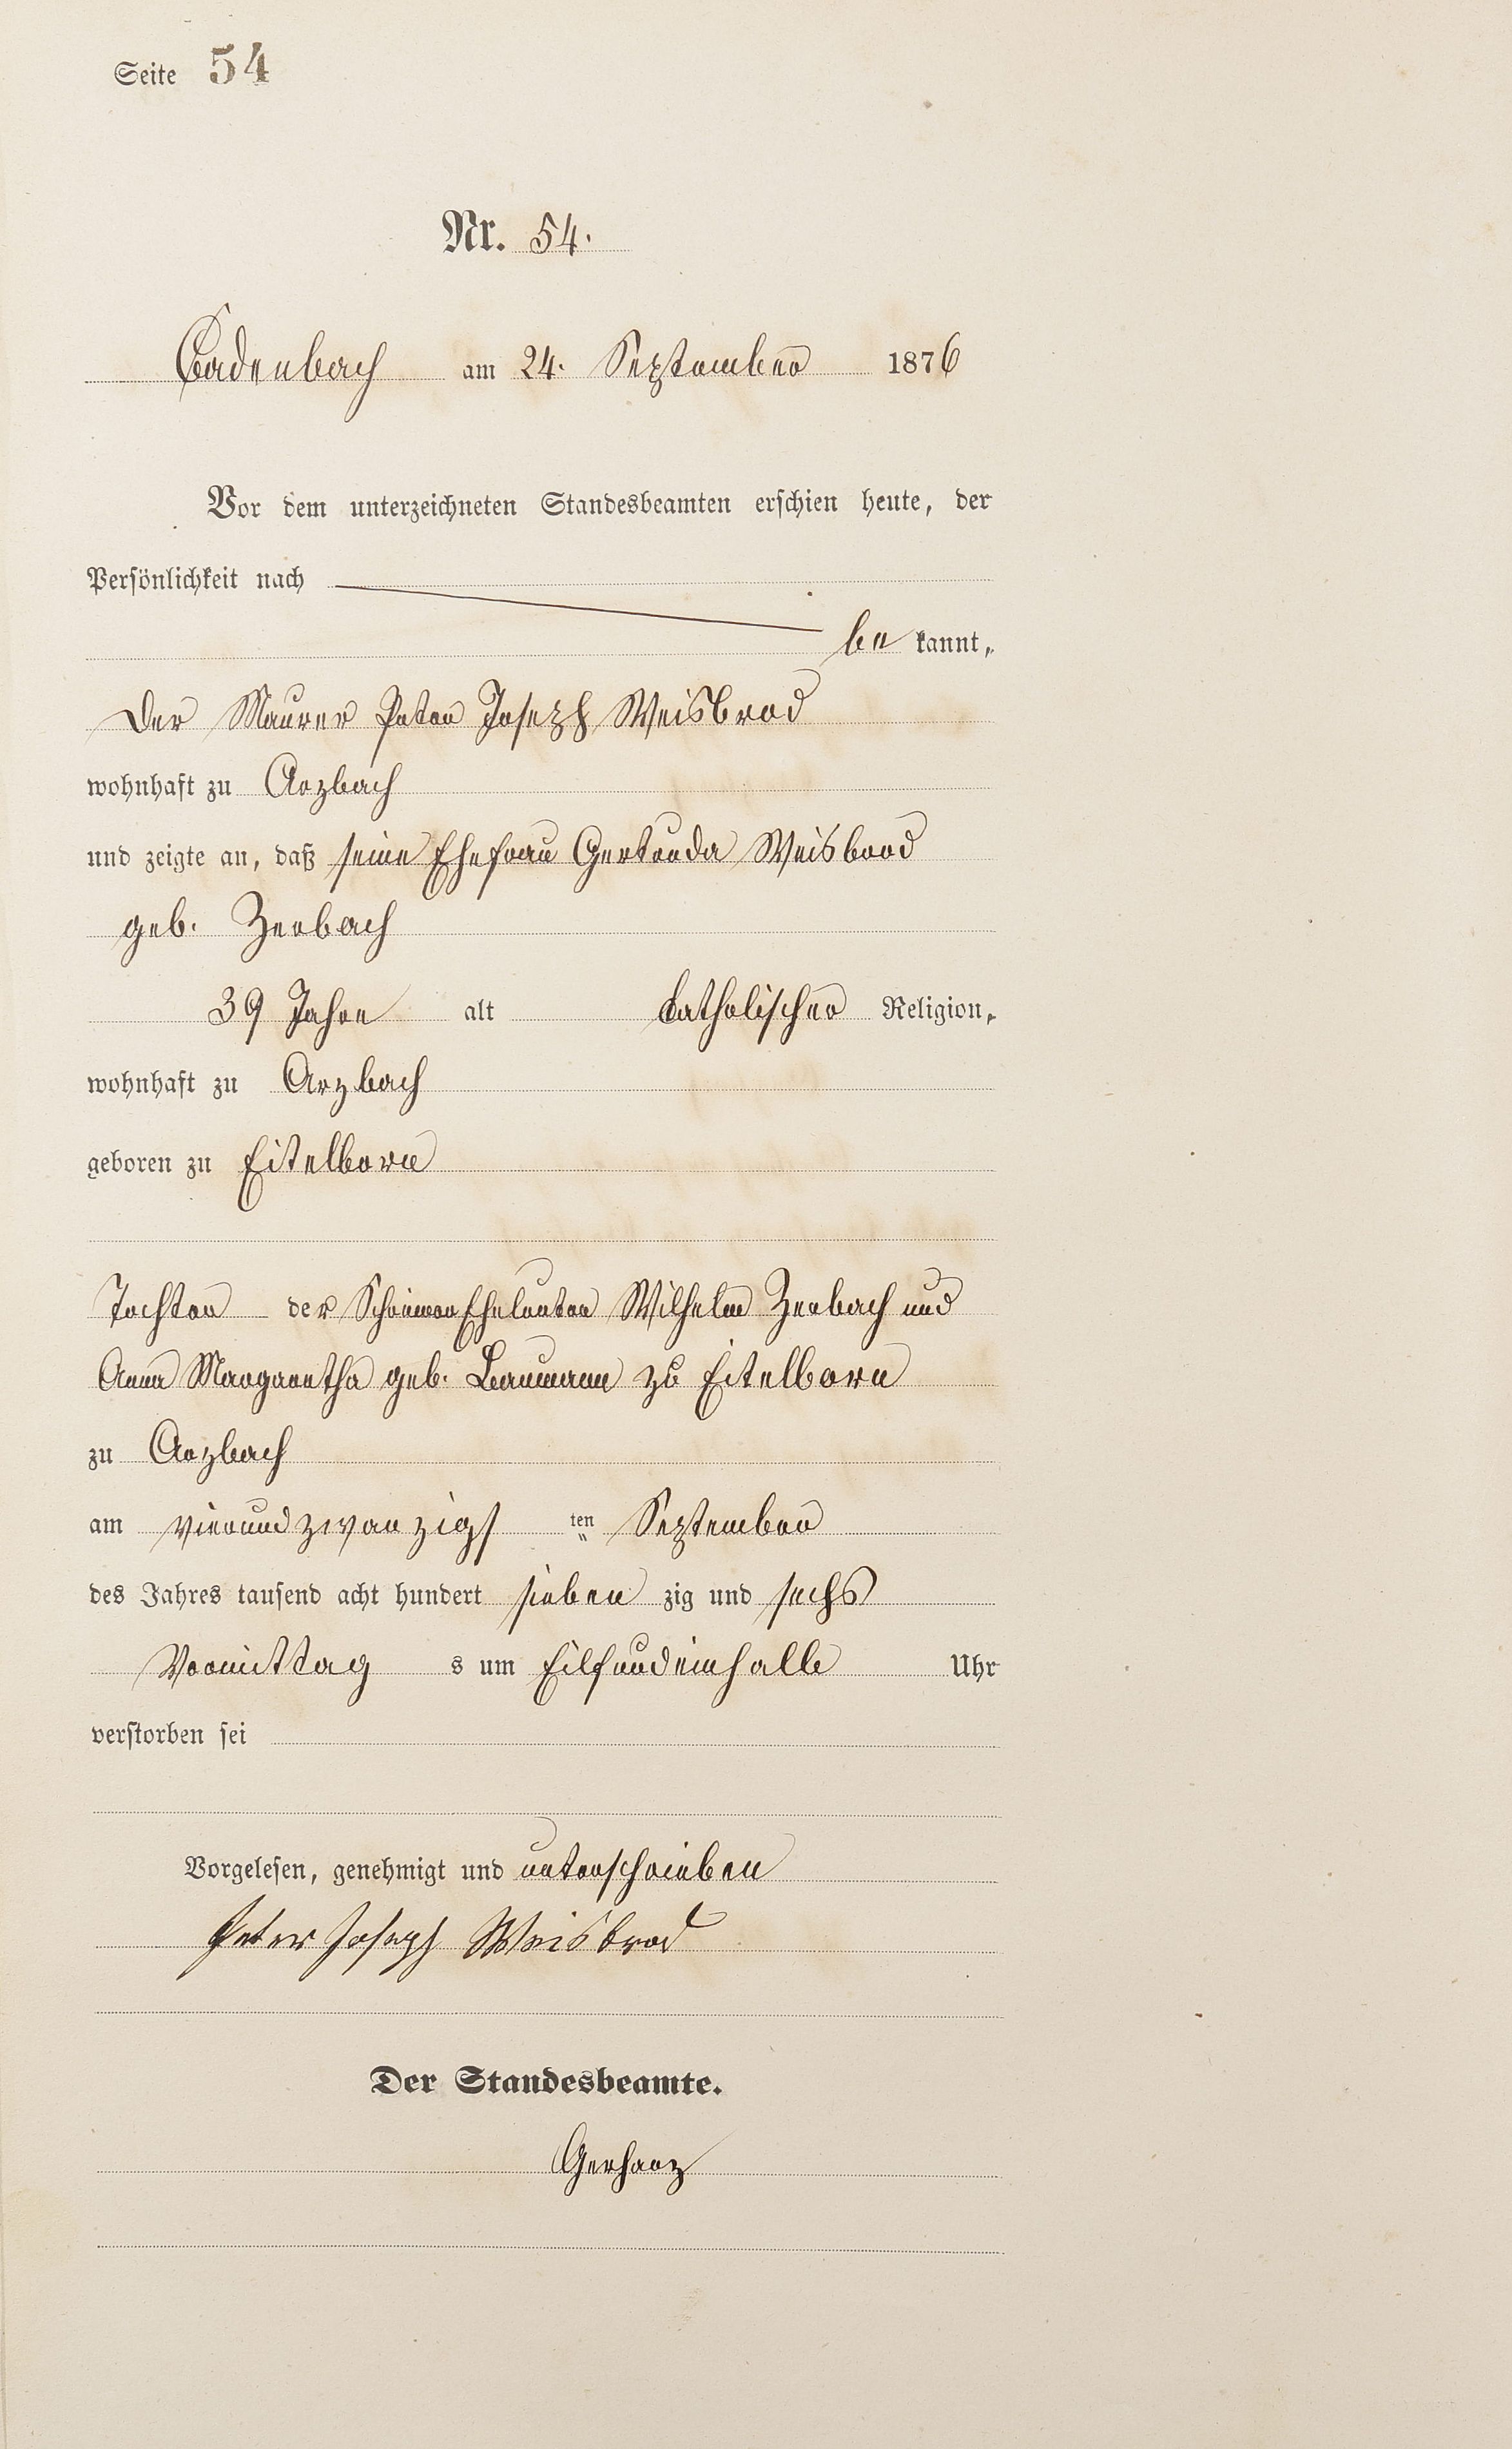 Seite 54
Nr. 54.
Cadenbach am 24. September 1876
Vor dem unterzeichneten Standesbeamten erschien heute, der
Persönlichkeit nach
be kannt,
der Maurer Peter Joseph Weisbrod
wohnhaft zu Arzbach
und zeigte an, daß seine Ehefrau Gertruda Weisbrod
geb. Zerbach
39 Jahre alt katholischer Religion,
wohnhaft zu Arzbach
geboren zu Eitelborn
Tochter der Eheleuten Wilhelm Zerbach und
Anna Margaretha geb. Baumann zu Eitelborn
zu Arzbach
am vierundzwanzigs ten September
des Jahres tausend acht hundert sieben zig und sechs
Vormittag s um Eilfundeinhalb Uhr
verstorben sei
Vorgelesen, genehmigt und unterschrieben
Peter Joseph Weisbrod
Der Standesbeamte.
Gerharz